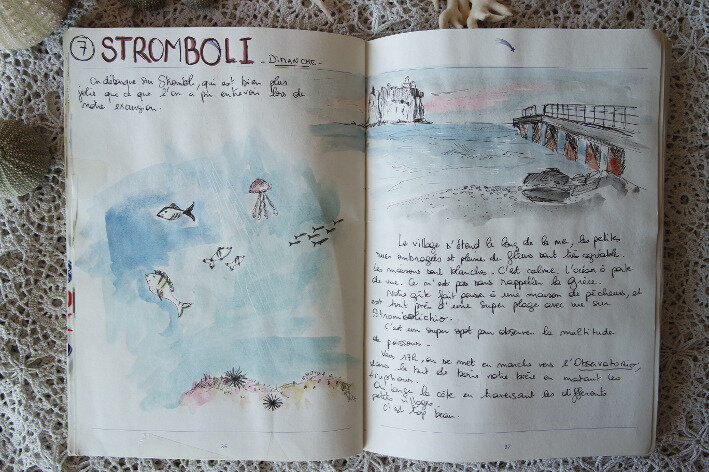 7 STROMBOLI - DIMANCHE -
On débarque sur Stromboli, qui est bien plus
jolie que ce que l'on a pu entrevoir lors de
notre excursion.
Le village s'étend le long de la mer, les petites
rues ombragées et pleine de fleurs sont très agréable.
Les maisons sont blanches. C'est calme, l'océan à perte
de vue. Ce n'est pas sans rappeller la Grèce.
Notre gîte fait penser à une maison de pêcheurs, et
est tout près d'une super plage avec vue sur
Strombolichio.
C'est un super spot pour observer la multitude
de poissons.
Vers 17h, on se met en marche vers l'Observatorio,
dans le but de boire notre bière en matant les
éruptions.
On longe la côte en traversant les différents
petits villages.
C'est top beau.
26
27